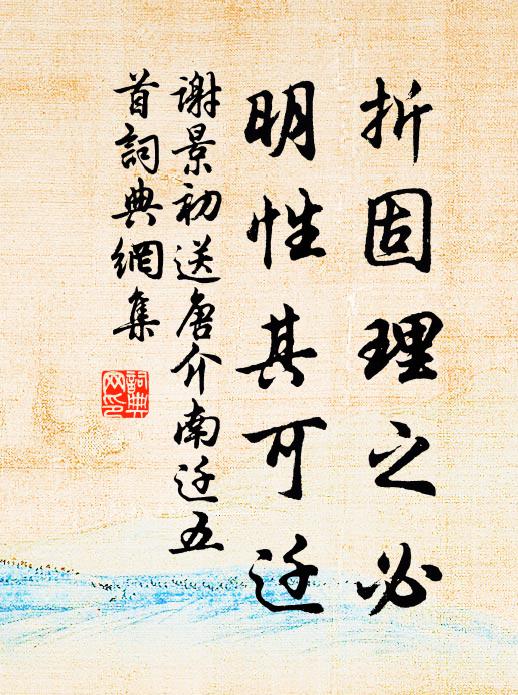 折固理之必
明性其可迁
谢景初送唐介南迁五
首词典网集
词典
网印